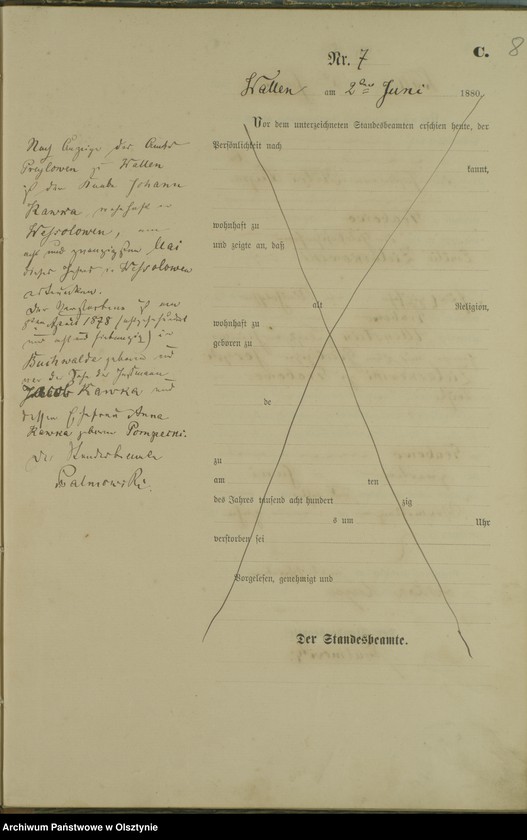 C.
8
Nr. 7
Wallen am 2ten Juni 1880
Vor dem unterzeichneten Standesbeamten erschien heute, der
Persönlichkeit nach
kannt,
wohnhaft zu
und zeigte an, daß
alt Religion,
wohnhaft zu
geboren zu
de
zu
am ten
des Jahres tausend acht hundert zig
s um Uhr
verstorben sei
Vorgelesen, genehmigt und
Der Standesbeamte.
Nach Anzeige des Amts
Preylowen zu Wallen
ist der Knabe Johann
Kawka, wohnhaft in
Wessolowen, am
acht und zwanzigsten Mai
dieses Jahres in Wessolowen
ertrunken.
Der Verstorbene ist am
April 1878 (achtzehnhundert
und acht und siebenzig) in
Buchwalde geboren und
war der Sohn der
Jacob Kawka und
dessen Ehefrau Anna
Kawka geborene
Der Standesbeamte